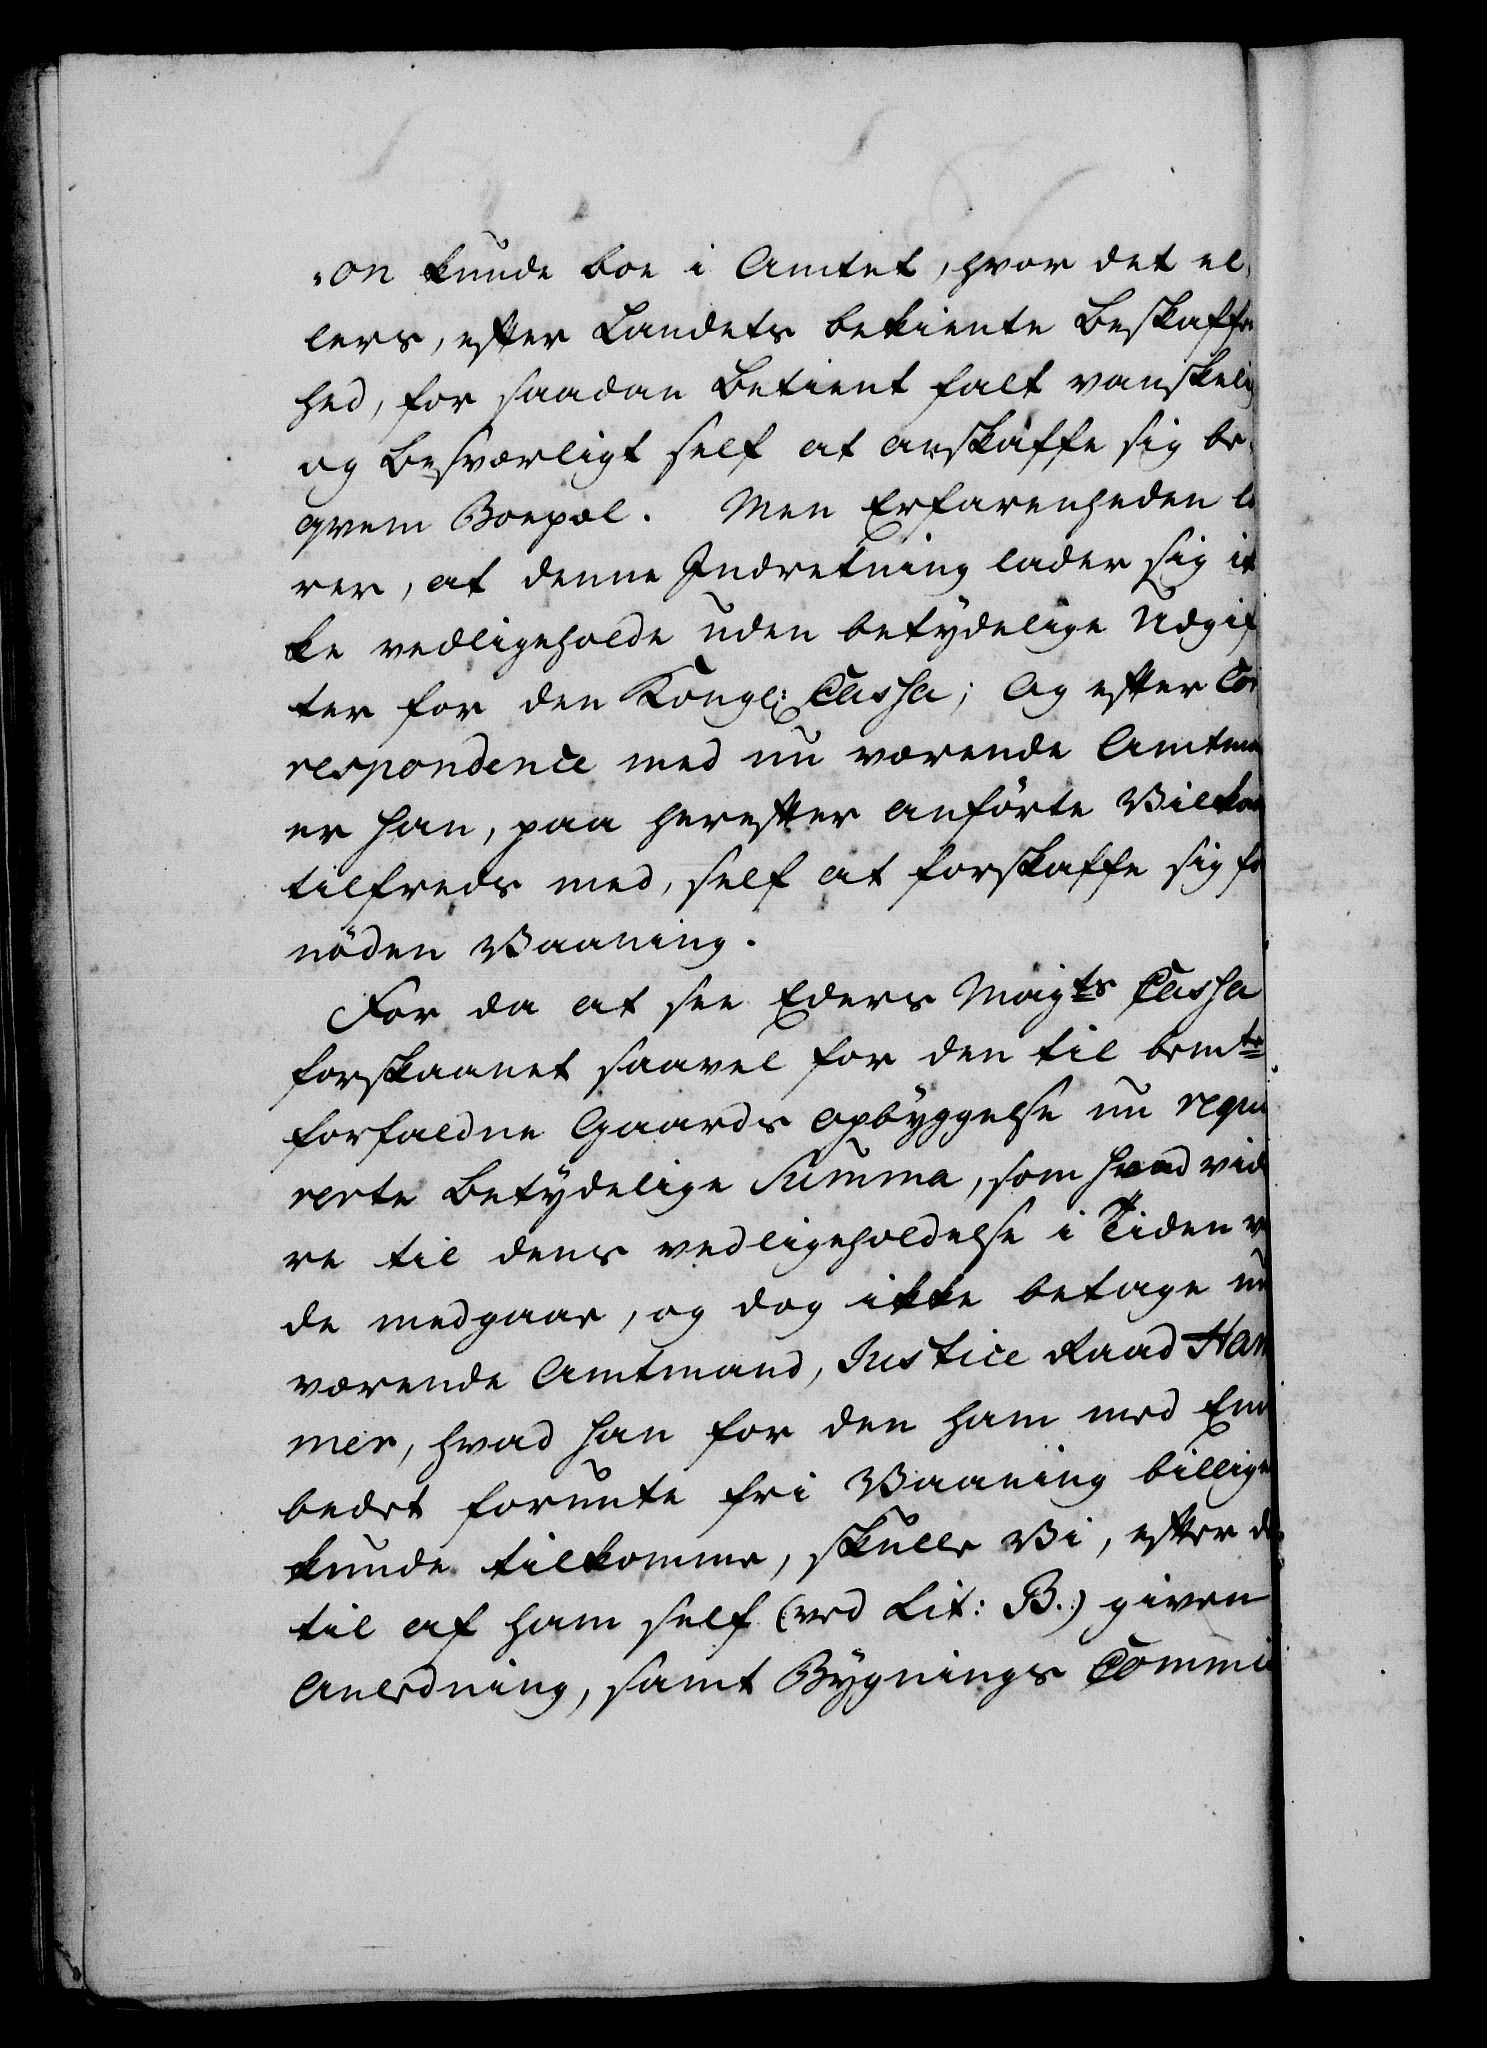 "on kunde boe i Amtet, hvor det el,
lers, efter Landets bekiente Beskaffen
hed, for saadan Betient falt vanskelig
og besværligt self at anskaffe sig be,
qvem Boepæl. Men Erfarenheden læ
rer, at denne Indretning lader sig ik
ke vedligeholde uden betydelige Udgif
ter for den Kongl: Cassa; Og efter Cor
respondence med nu værende Amtman
er han, paa herefter anförte Vilkaar
tilfreds med, self at forskaffe sig for
nöden Vaaning.
For da at see Eders Maigts Cassa
forskaanet saavel for den til bemte
forfaldne Gaards opbyggelse nu reqvi
rerte betydelige Summa, som hvad vide
re til dens vedligeholdelse i Tiden vil
de medgaae, og dog ikke betage nu
værende Amtmand, Justice Raad Ham
mer, hvad han for den ham med Em
bedet forunte fri Vaaning billigen
kunde tilkomme, skulle Vi, efter der
til af ham self (ved Lit: B.) given
Anledning, samt Bygnings Commis